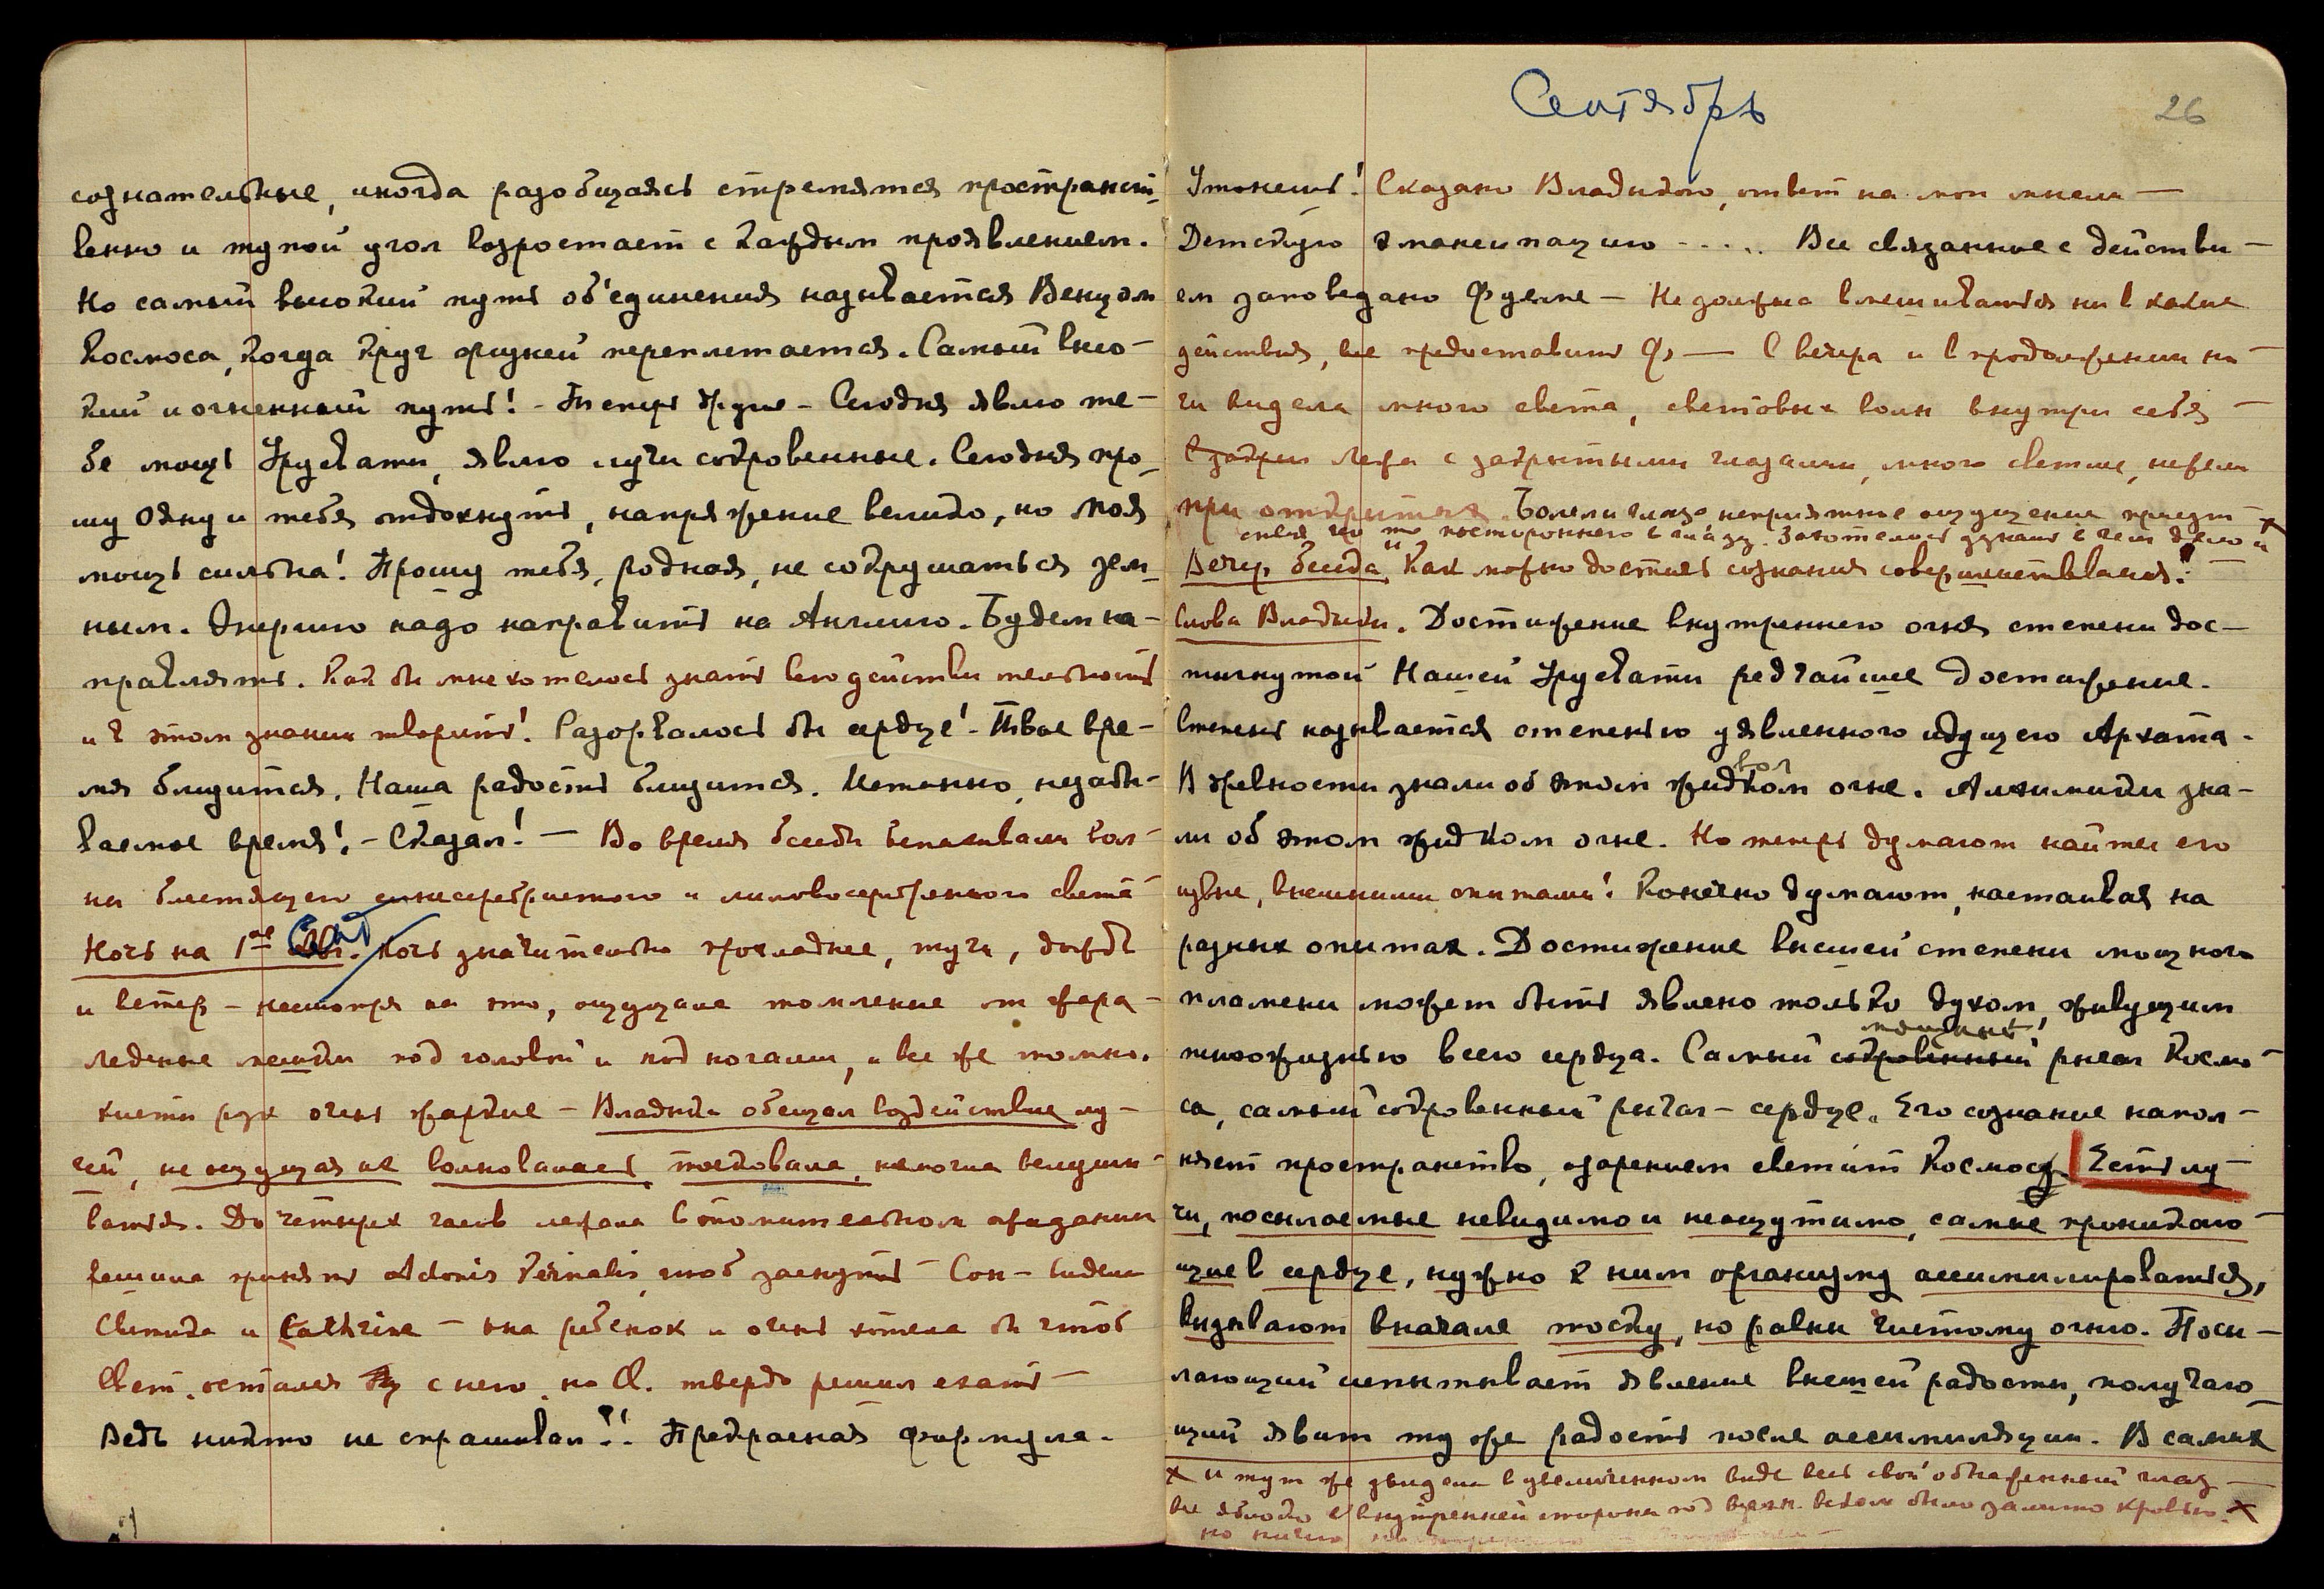 сознательные, иногда разобщаясь стремятся пространст-
венно и тупой угол возростает с каждым проявлением.
Но самый высокий путь об'единения называется Венцом
Космоса, когда круг жизней переплетается. Самый высо-
кий и огненный путь! - Теперь другое - Сегодня явлю те-
бе мощь Урусвати, явлю лучи сокровенные. Сегодня про-
шу Ояну и тебя отдохнуть, напряжение велико, но моя
мощь сильна! Прошу тебя, родная, не сокрушаться зем-
ным. Энергию надо направить на Англию. Будем на-
правлять. Как бы мне хотелось знать всю действительность
и в этом знании творить! Разорвалось бы сердце! - Твое вре-
мя близится. Наша радость близится. Истинно, незабы-
ваемое время! - Сказал! - Во время беседы вспыхивали вол-
ны блестящего синесеребристого и лиловосеребряного света
Ночь на 1ое Сент. Ночь значительно прохладнее, тучи, дождь
и ветер - несмотря на это, ощущала томление от жара -
Ледяные мешки под головой и под ногами, и все же томно.
кисти рук очень жаркие - Владыка обещал воздействие лу-
чей, не ощущая их волновалась, тосковала, не могла вслуши-
ваться. До четырех часов лежала в томительном ожидании
решила принять Adonis Vernalis, чтоб заснуть - Сон - видела
Светика и Cathrine - она ребенок и очень хотела бы чтоб
Свет. остался с нею, но С. твердо решил ехать -
Ведь никто не спрашивал?!. Прекрасная формула.
Сентябрь
26
Утонешь! Сказано Владыкою, ответ на мои мысли -
Детскую эмансипацию - . . . Все связанное с действи-
ем заповедано Фуяме - Не должна вмешиваться ни в какие
действия, все предоставить Ф. - С вечера и в продолжении но-
чи видела много света, световых волн внутри себя -
лежа с закрытыми глазами, много светлее, нежели
при открытых. Болели глаза неприятное ощущение
что то постороннего в глазу. Захотелось узнать в чем дело и х
Вечер. беседа. Как можно достичь сознания совершенствования?
Слова Владыки. Достижение внутреннего огня степени дос-
тигнутой Нашей Урусвати редчайшее достижение.
Степень называется степенью уявленного идущего Архата.
В древности знали об этом жидком огне. Алхимики зна-
ли об этом жидком огне. Но теперь думают найти его
извне, внешними опытами! Конечно думают, настаивая на
разных опытах. Достижение высшей степени мощного
пламени может быть явлено только духом, живущим
мощный!
тысожизнью всего сердца. Самый сокровенный рычаг Космо-
са, самый сокровенный рычаг - сердце. Его сознание напол-
няет пространство, озарением светит Космосу. Есть лу-
чи, посылаемые невидимо и неощутимо, самые проникаю-
щие в сердце, нужно к ним организму ассимилироваться,
вызывают вначале тоску, но равны чистому огню. Посы-
лающий испытывает явление высшей радости, получаю-
щий явит ту же радость после ассимиляции. В самых
х и тут же увидела в увеличенном виде весь свой обнаженный глаз -
все яблоко с внутренней стороны под верхн. веком было залито кровью. х
но ничего